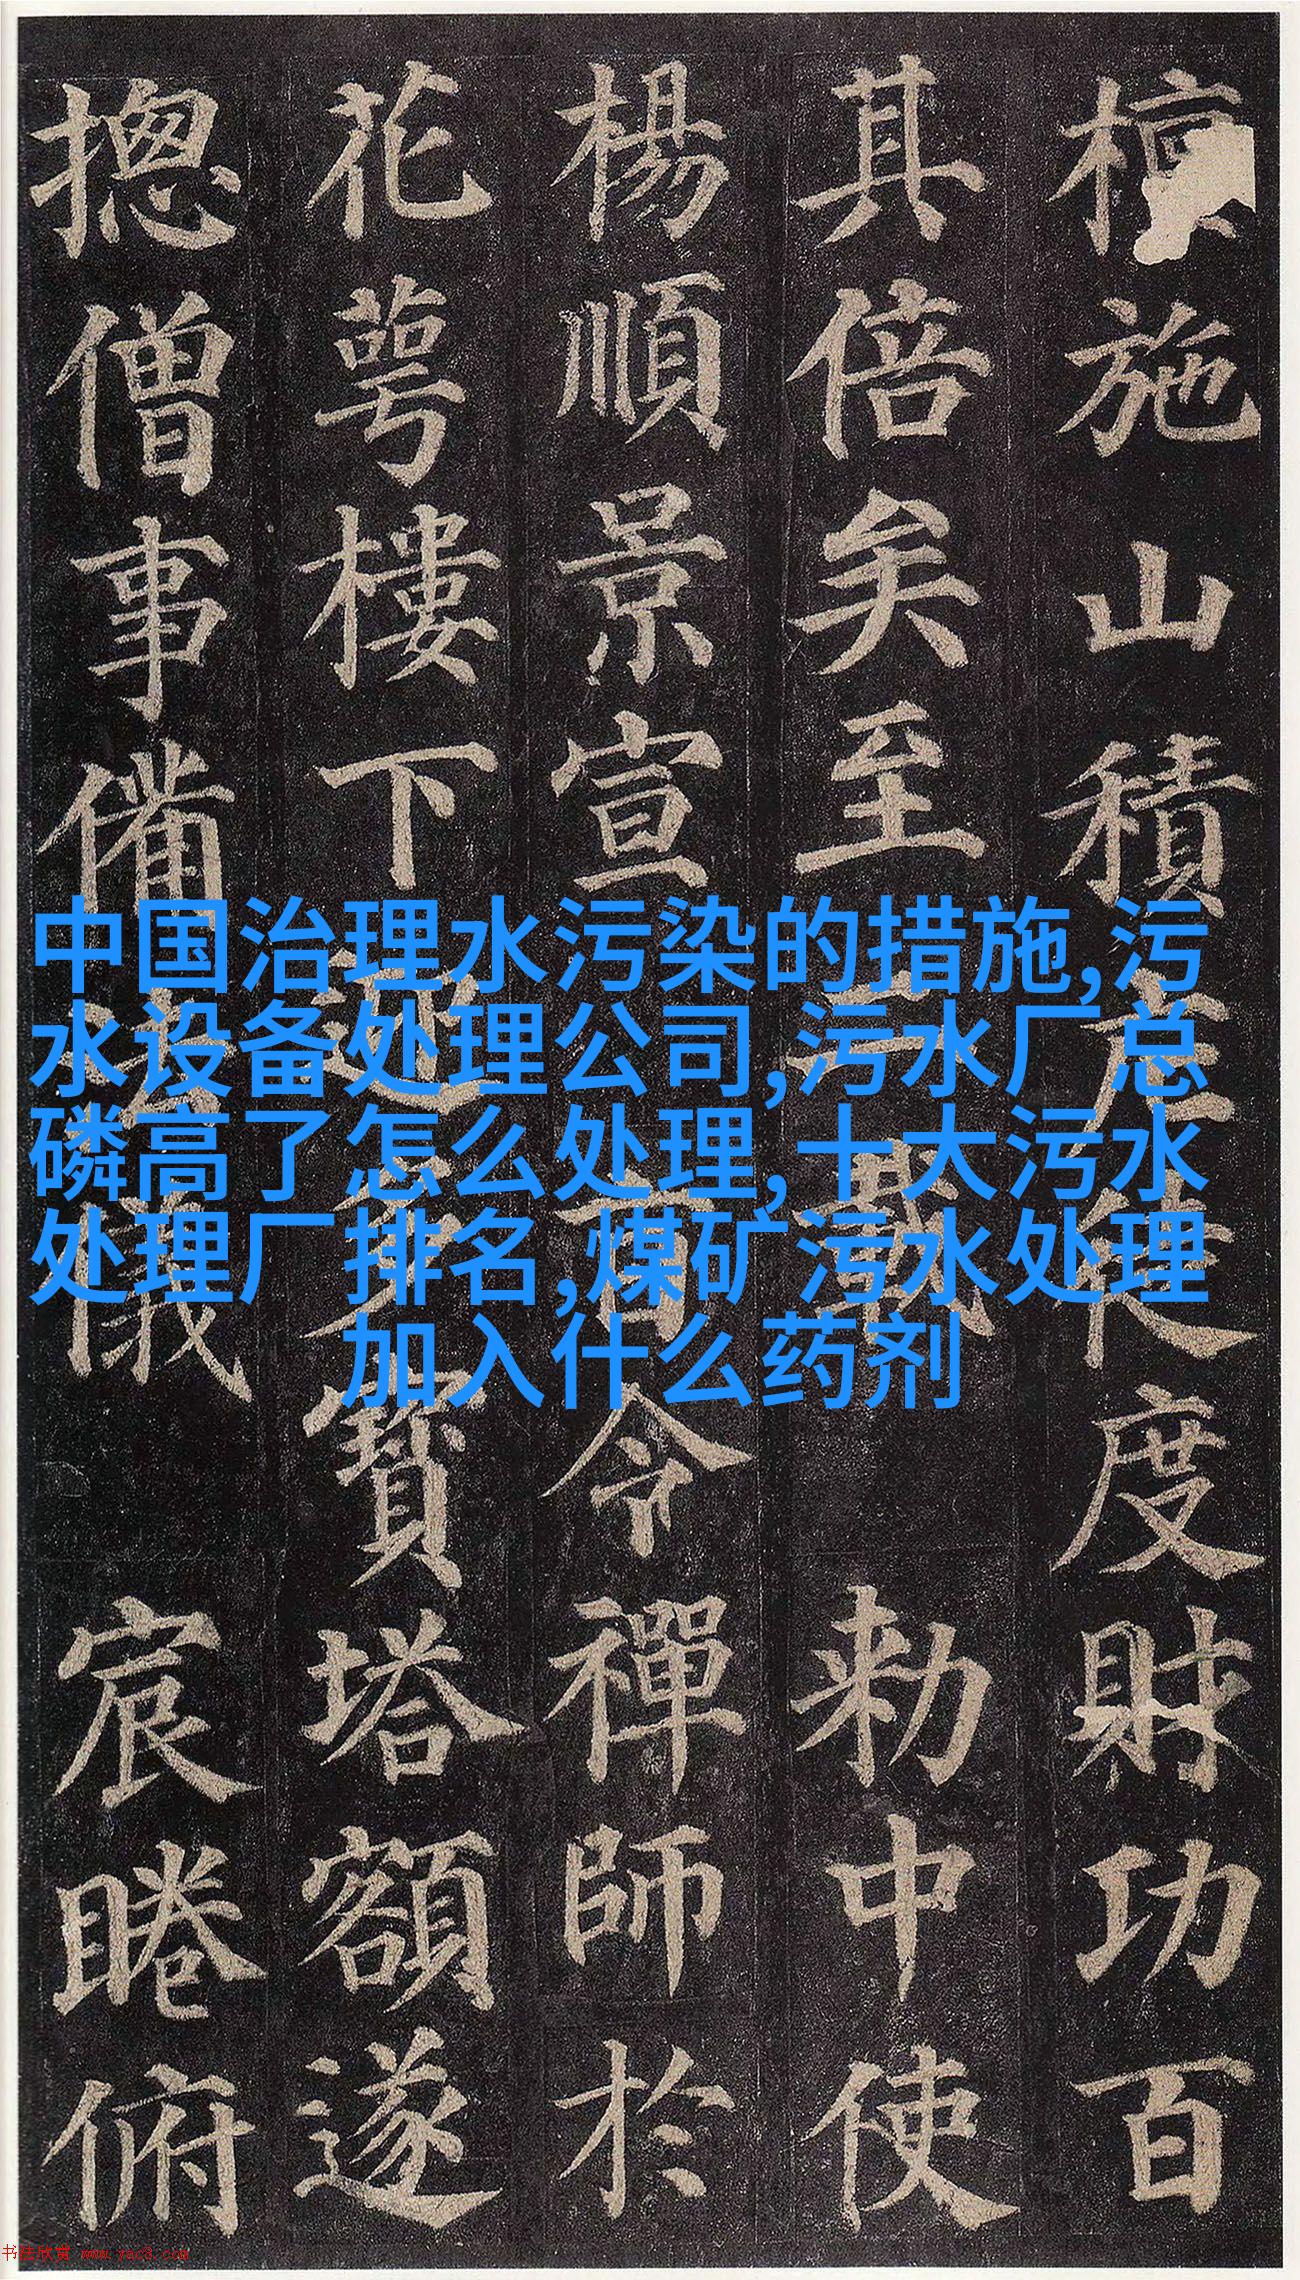 檀施山積庀徒度財功百
其倍矣至二載 勑中使
楊順景宣旨令禪師於
花萼樓下迎多寶塔額遂
摠僧事備法儀 宸睠俯
中国治理水污染的措施,污
水设备处理公司,污水厂总
磷高了怎么处理,十大污水
处理厂排名,煤矿污水处理
加入什么药剂
书法欣赏 www.yac3.com